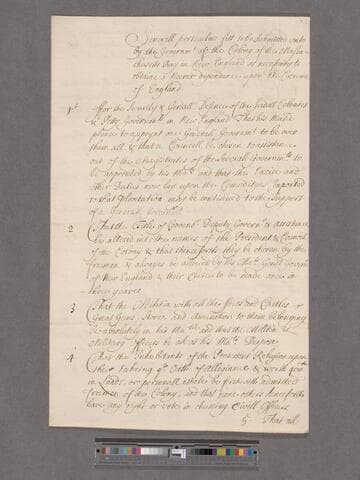 Severall particulars fitt to be Submitted unto
by the Governmt. of the Colony of the Massa-
chusetts Bay in New England as necessary to
obtaine a Nearer dependence upon the Crowne
of England
1st. ffor the Security & Genall. Defence of the Severall Colonies
& Petty Governmts. in New England That his Matie.
please to appoynt one Generall Governmt. to be over
them all & that a Councill be chosen to assistance
out of the Magistrates of the Severall Governmts. to
be approved by his Matie. and that the Excise and
other Duties now lay upon the Comodities Imported
to that Plantation may be continued to the Support
of a Generall Governmt.
2 That the Title of Governr. Deputy Governr. & assistants
be altered into the names of the President & Councill
of the Colony & that henceforth they be chosen by the
freemen & always be allowed by his Matie. Genll. Governr
of New England & their Choice to be made once in
three yeares
3 That the Militia with all the fforts and Castles
Great Guns, Stores, and Amunition to them belonging
be absolutely in his Matie. and that the Militia &
Military Officers be all at his Mats. Dispose
4 That the Inhabitants of the Protestant Religion upon
their takeing ye. Oath of Allegiance & worth
in Lands, or personall estate be forthwith admitted
freemen of this Colony, and that none others henceforth
have any right or vote in chusing Civill Officers
5 That all